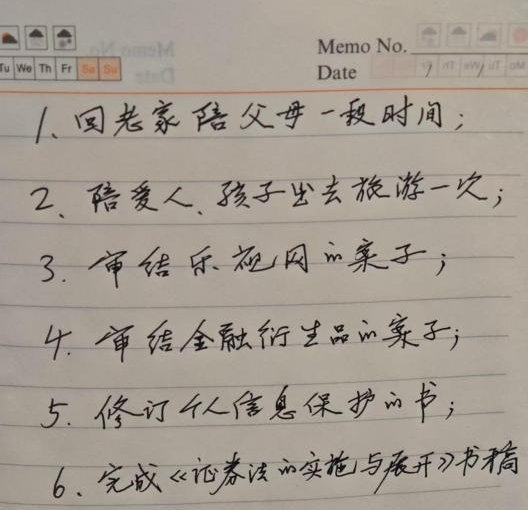 Tu We Th Fr Sa Su
Memo No.
Date
1、回老家陪父母一段时间；
2、陪爱人、孩子出去旅游一次；
3. 审结乐视网的案子；
4. 审结金融衍生品的案子；
5. 修订个人信息保护的书；
6、完成《证券法的实施与展开》书稿